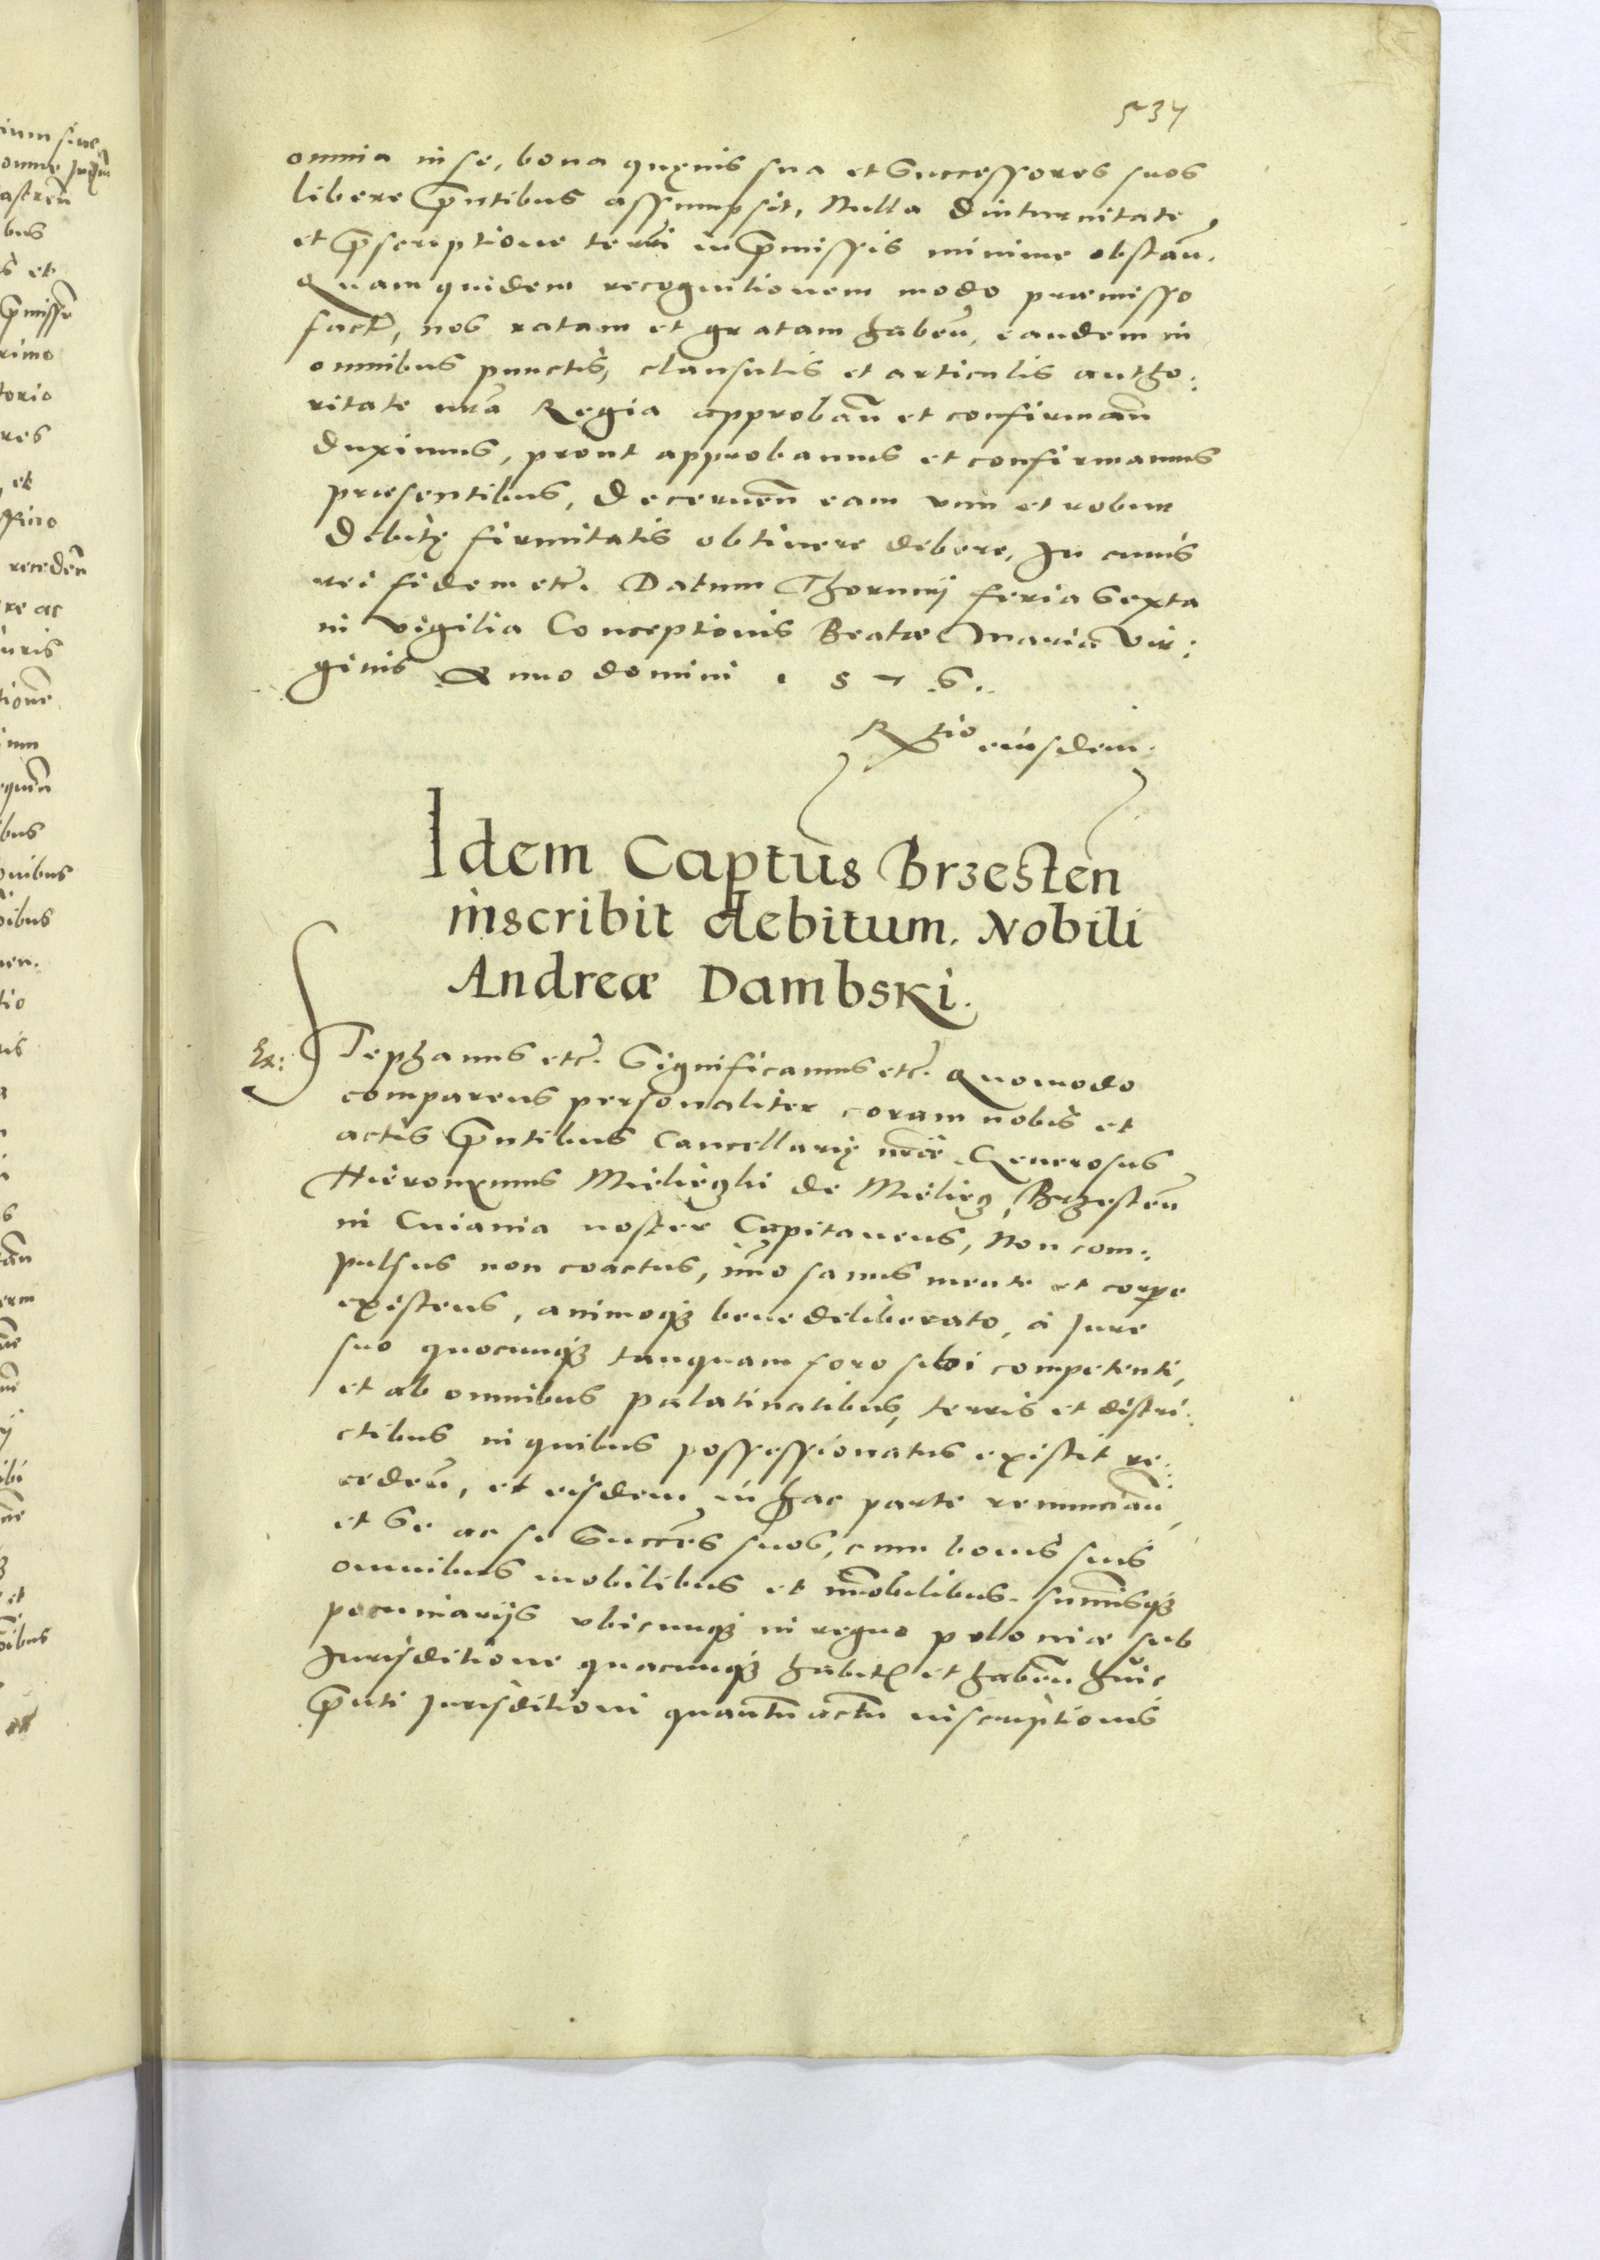 537
omnia in se, bona quęuis sua et Successores suos
libere p̃ntibus assumpsit, Nulla diuturnitate,
et p̃scriptione terrĩ in p̃missis minime obstañ.
Quam quidem recognitionem modo præmisso
fact̃, nos ratam et gratam habeñ, eandem in
omnibus punctis, clausulis et articulis autho:
ritate nr̃a Regia approbañ et confirmañ
duximus, prout approbamus et confirmamus
præsentibus, Decerneñ eam vim et robur
debitę firmitatis obtinere debere, In cuius
rei fidem etc̃. Datum Thorunij feria Sexta
in vigilia Conceptionis Beatæ Mariæ Vir:
ginis Anno domini 1576.
Rtio eiusdem.
Idem Captus Brzesten
inscribit debitum. Nobili
Andreæ Dambski.
Ex:
Stephanus etc̃. Significamus etc̃. Quomodo
comparens personaliter coram nobis et
actis p̃ntibus Cancellarię nr̃æ Generosus
Hieronymus Mielięzki de Mielięz, Brzesteñ
in Cuiauia noster Capitaneus, Non com:
pulsus non coactus, im̃o sanus mente et corpe
existens, animoq3 bene deliberato, à Jure
suo quocunq3 tanquam foro sibi competenti,
et ab omnibus palatinatibus, terris et distri:
ctibus in quibus possessionatus existit re:
cedeñ, et eisdem in hac parte renunciañ,
et Se ac se Succẽs suos, cum bonis suis
omnibus mobilibus et im̃obilibus. sum̃isq3
pecuniarijs vbicunq3 in regno poloniæ sub
Jurisditione quacunq3 habit̃ et habeñ huic
p̃nti Jurisditioni quantũ actũ inscriptionis